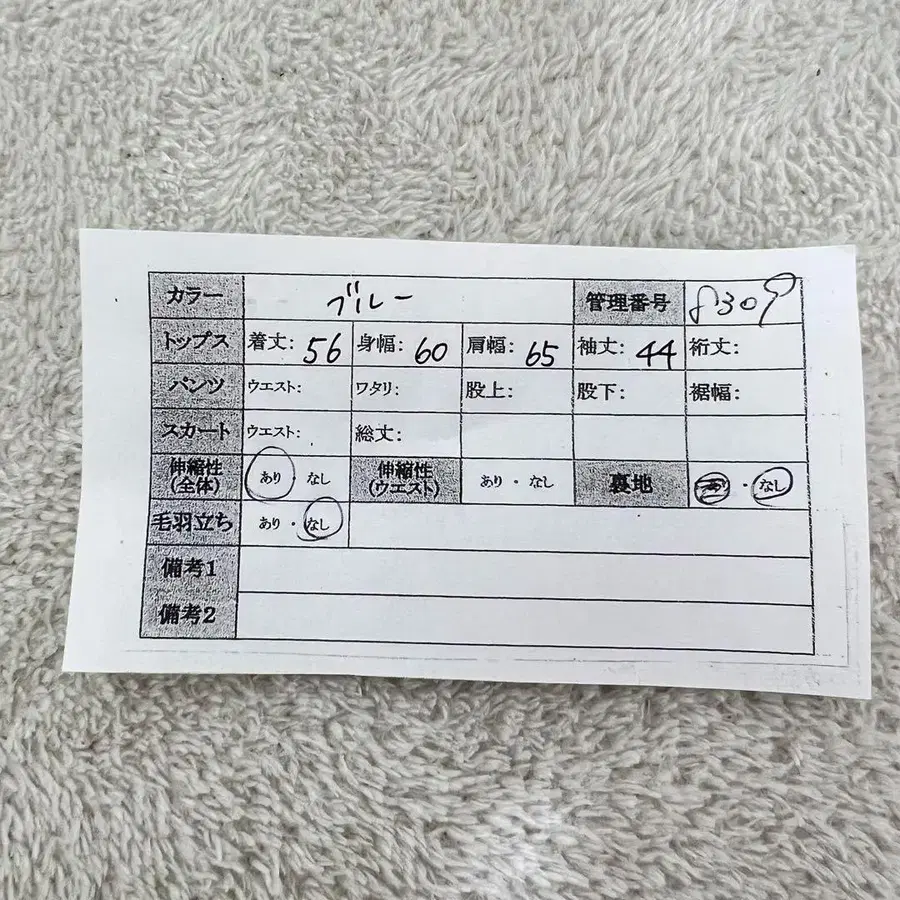 カラー ブルー 管理番号 8309
トップス 着丈: 56 身幅: 60 肩幅: 65 袖丈: 44 裄丈:
パンツ ウエスト: ワタリ: 股上: 股下: 裾幅:
スカート ウエスト: 総丈:
伸縮性(全体) あり・なし 伸縮性(ウエスト) あり・なし 裏地 あり・なし
毛羽立ち あり・なし
備考1
備考2